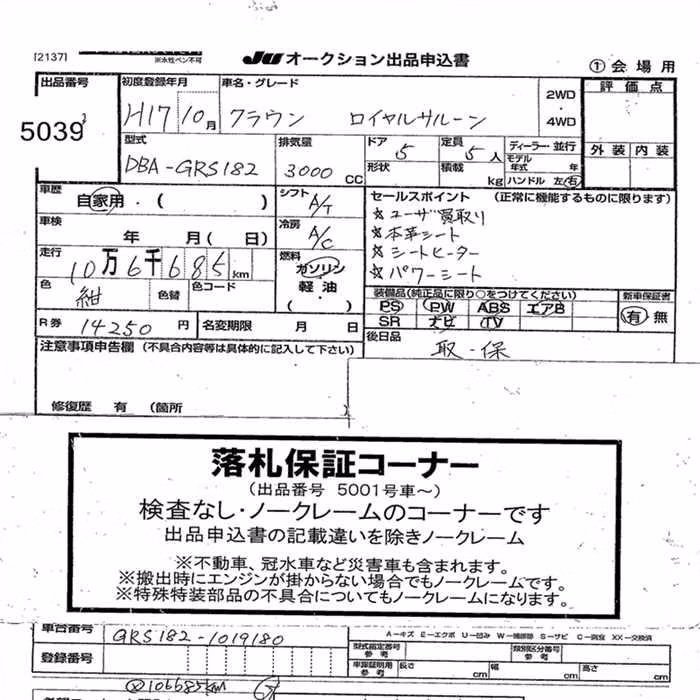 [2137] ※水性ペン不可 JU オークション出品申込書 ①会場用
出品番号 初度登録年月 車名・グレード 2WD・4WD 評価点
5039 H17 10月 クラウン ロイヤルサルーン
型式 排気量 ドア 定員 ディーラー・並行 外装 内装
DBA-GRS182 3000CC 5 5人 モデル年式 年
形状 積載 kg ハンドル 左・右
車歴 自家用・( ) シフト A/T セールスポイント (正常に機能するものに限ります)
☆ユーザ買取り
車検 年 月( 日) 冷房 A/C ☆本革シート
走行 10万6千685km 燃料 ガソリン ☆シートヒーター
軽油・( ) ☆パワーシート
色 紺 色替 色コード 装備品(純正品に限り○をつけてください) 新車保証書
PS PW ABS エアB 有・無
R券 14250円 名変期限 月 日 SR ナビ TV
注意事項申告欄 (不具合内容等は具体的に記入して下さい) 後日品 取・保
修復歴 有 (箇所
落札保証コーナー
(出品番号 5001号車～)
検査なし・ノークレームのコーナーです
出品申込書の記載違いを除きノークレーム
※不動車、冠水車など災害車も含まれます。
※搬出時にエンジンが掛からない場合でもノークレームです。
※特殊特装部品の不具合についてもノークレームになります。
車台番号 GRS182-1019180 A-キズ E-エクボ U-凹み W-補修跡 S-サビ C-腐食 XX-交換済
登録番号 型式指定番号 参考 類別区分番号 参考
車庫証明用 参考 長さ cm 幅 cm 高さ cm
106685km